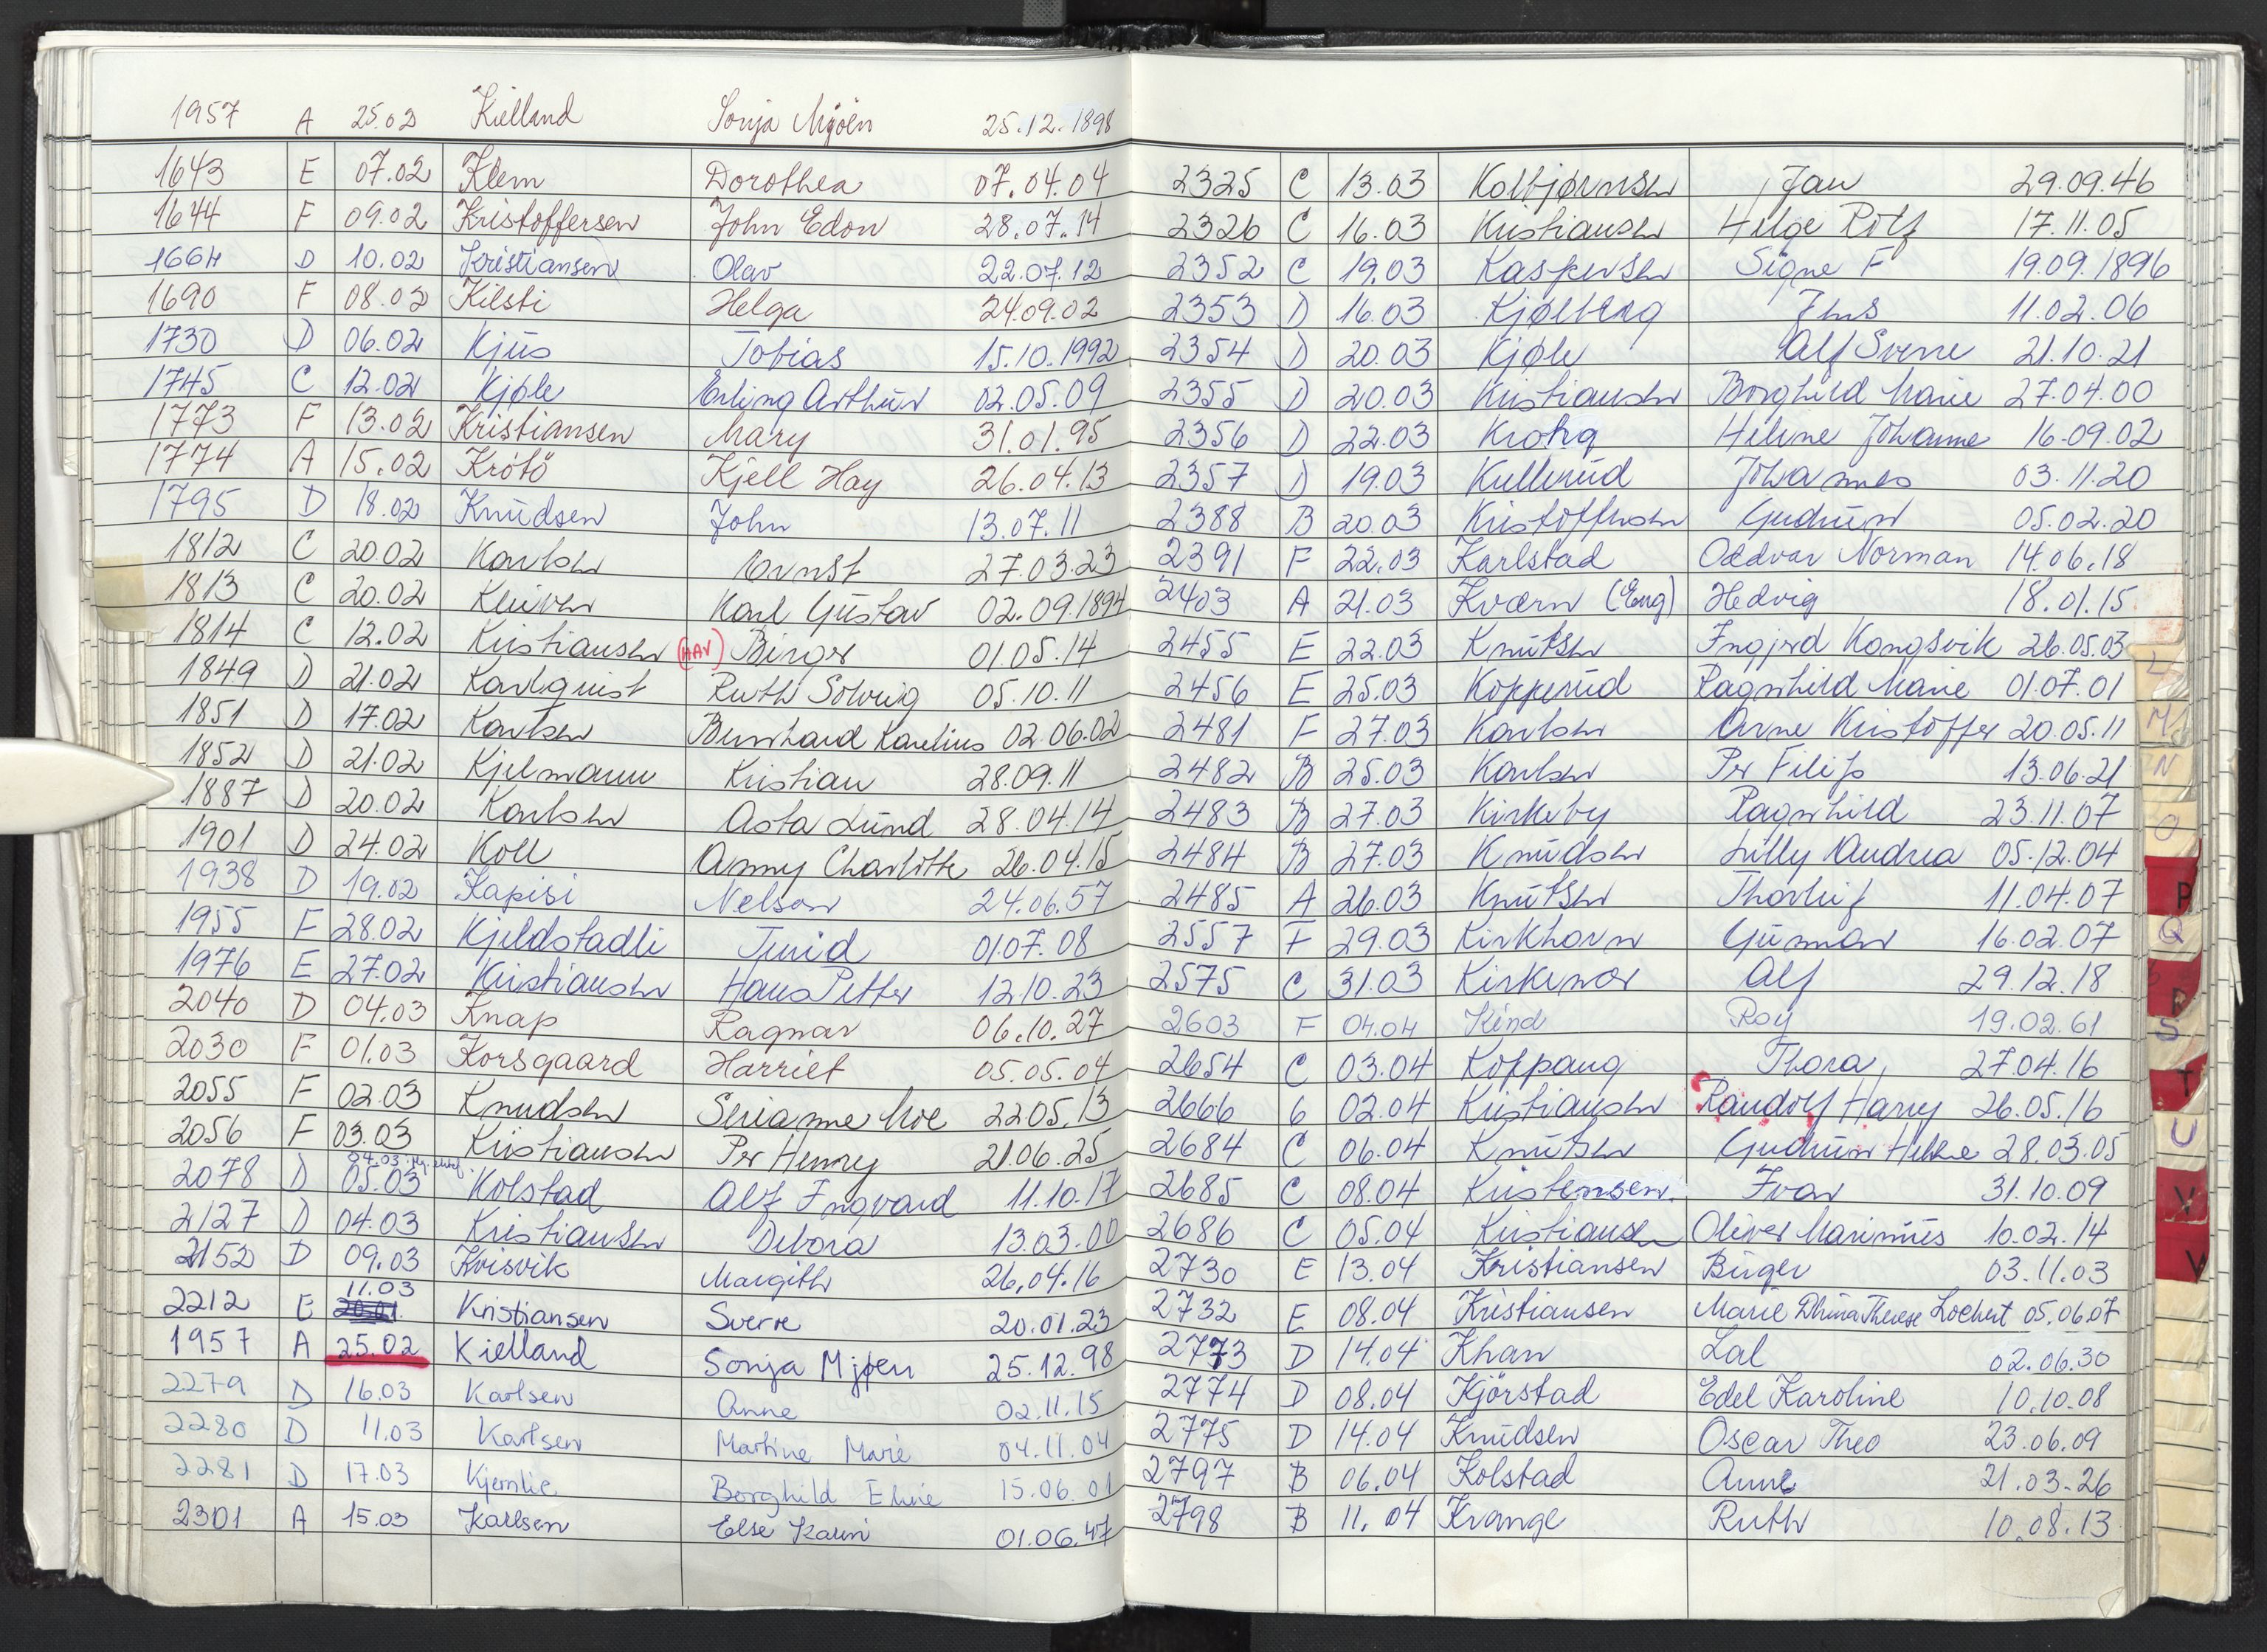 1957 A 25.02 Kielland Sonja Mjöen 25.12.1898
1643 E 07.02 Klem Dorothea 07.04.04
1644 F 09.02 Kristoffersen John Edon 28.07.14
1664 D 10.02 Kristiansen Olav 22.07.12
1690 F 08.02 Kilsti Helga 24.09.02
1730 D 06.02 Kjus Tobias 15.10.1992
1745 C 12.02 Kjøle Erling Arthur 02.05.09
1773 F 13.02 Kristiansen Mary 31.01.95
1774 A 15.02 Krötö Kjell Hay 26.04.13
1795 D 18.02 Knudsen John 13.07.11
1812 C 20.02 Karlsen Ernst 27.03.23
1813 C 20.02 Kluver Karl Gustav 02.09.1894
1814 C 12.02 Kristiansen (HAV) Birger 01.05.14
1849 D 21.02 Karlquist Ruth Solveig 05.10.11
1851 D 17.02 Karlsen Bernhard Karelius 02.06.02
1852 D 21.02 Kjelmann Kristian 28.09.11
1887 D 20.02 Karlsen Asta Lund 28.04.14
1901 D 24.02 Koll Anny Charlotte 26.04.15
1938 D 19.02 Kapisi Nelson 24.06.57
1955 F 28.02 Kjeldstadli Turid 01.07.08
1976 E 27.02 Kristiansen Hans Petter 12.10.23
2040 D 04.03 Knap Ragnar 06.10.27
2030 F 01.03 Korsgaard Harriet 05.05.04
2055 F 02.03 Knudsen Serianne Moe 22.05.13
2056 F 03.03 Kristiansen Per Henry 21.06.25
04.03
2078 D 05.03 Kolstad Alf Ingvard 11.10.17
2127 D 04.03 Kristiansen Debora 13.03.00
2152 D 09.03 Kvisvik Margith 26.04.16
11.03
2212 E Kristiansen Sverre 20.01.23
1957 A 25.02 Kielland Sonja Mjøen 25.12.98
2279 D 16.03 Karlsen Anne 02.11.15
2280 D 11.03 Karlsen Martine Marie 04.11.04
2281 D 17.03 Kjernlie Borghild Elvine 15.06.01
2301 A 15.03 Karlsen Else Karin 01.06.47
2325 C 13.03 Kolbjørnsen Jan 29.09.46
2326 C 16.03 Kristiansen Helge Rolf 17.11.05
2352 C 19.03 Kaspersen Signe F 19.09.1896
2353 D 16.03 Kjølberg Jens 11.02.06
2354 D 20.03 Kjøle Alf Sverre 21.10.21
2355 D 20.03 Kristiansen Borghild Marie 27.04.00
2356 D 22.03 Krohg Helene Johanne 16.09.02
2357 D 19.03 Kullerud Johannes 03.11.20
2388 B 20.03 Kristoffersen Gudrun 05.02.20
2391 F 22.03 Karlstad Oddvar Norman 14.06.18
2403 A 21.03 Kværn (Eng) Hedvig 18.01.15
2455 E 22.03 Knutsen Ingjerd Kongsvik 26.05.03
2456 E 25.03 Kopperud Ragnhild Marie 01.07.01
2481 F 27.03 Karlsen Arne Kristoffer 20.05.11
2482 B 25.03 Karlsen Per Filip 13.06.21
2483 B 27.03 Kirkeby Ragnhild 23.11.07
2484 B 27.03 Knudsen Lilly Andrea 05.12.04
2485 A 26.03 Knutsen Thorleif 11.04.07
2557 F 29.03 Kirkhorn Gunnar 16.02.07
2575 C 31.03 Kirkemor Alf 29.12.18
2603 F 04.04 Kind Roy 19.02.61
2654 C 03.04 Koppang Thora 27.04.16
2666 6 02.04 Kristiansen Randolf Harry 26.05.16
2684 C 06.04 Knutsen Gudrun Helene 28.03.05
2685 C 08.04 Kristensen Ivar 31.10.09
2686 C 05.04 Kristiansen Oliver Marinius 10.02.14
2730 E 13.04 Kristiansen Birger 03.11.03
2732 E 08.04 Kristiansen Marie Dhina Therese Lochert 05.06.07
2773 D 14.04 Khan Lal 02.06.30
2774 D 08.04 Kjörstad Edel Karoline 10.10.08
2775 D 14.04 Knudsen Oscar Theo 23.06.09
2797 B 06.04 Kolstad Anne 21.03.26
2798 B 11.04 Krange Ruth 10.08.13
L
M
N
O
P
Q
R
S
T
U
V